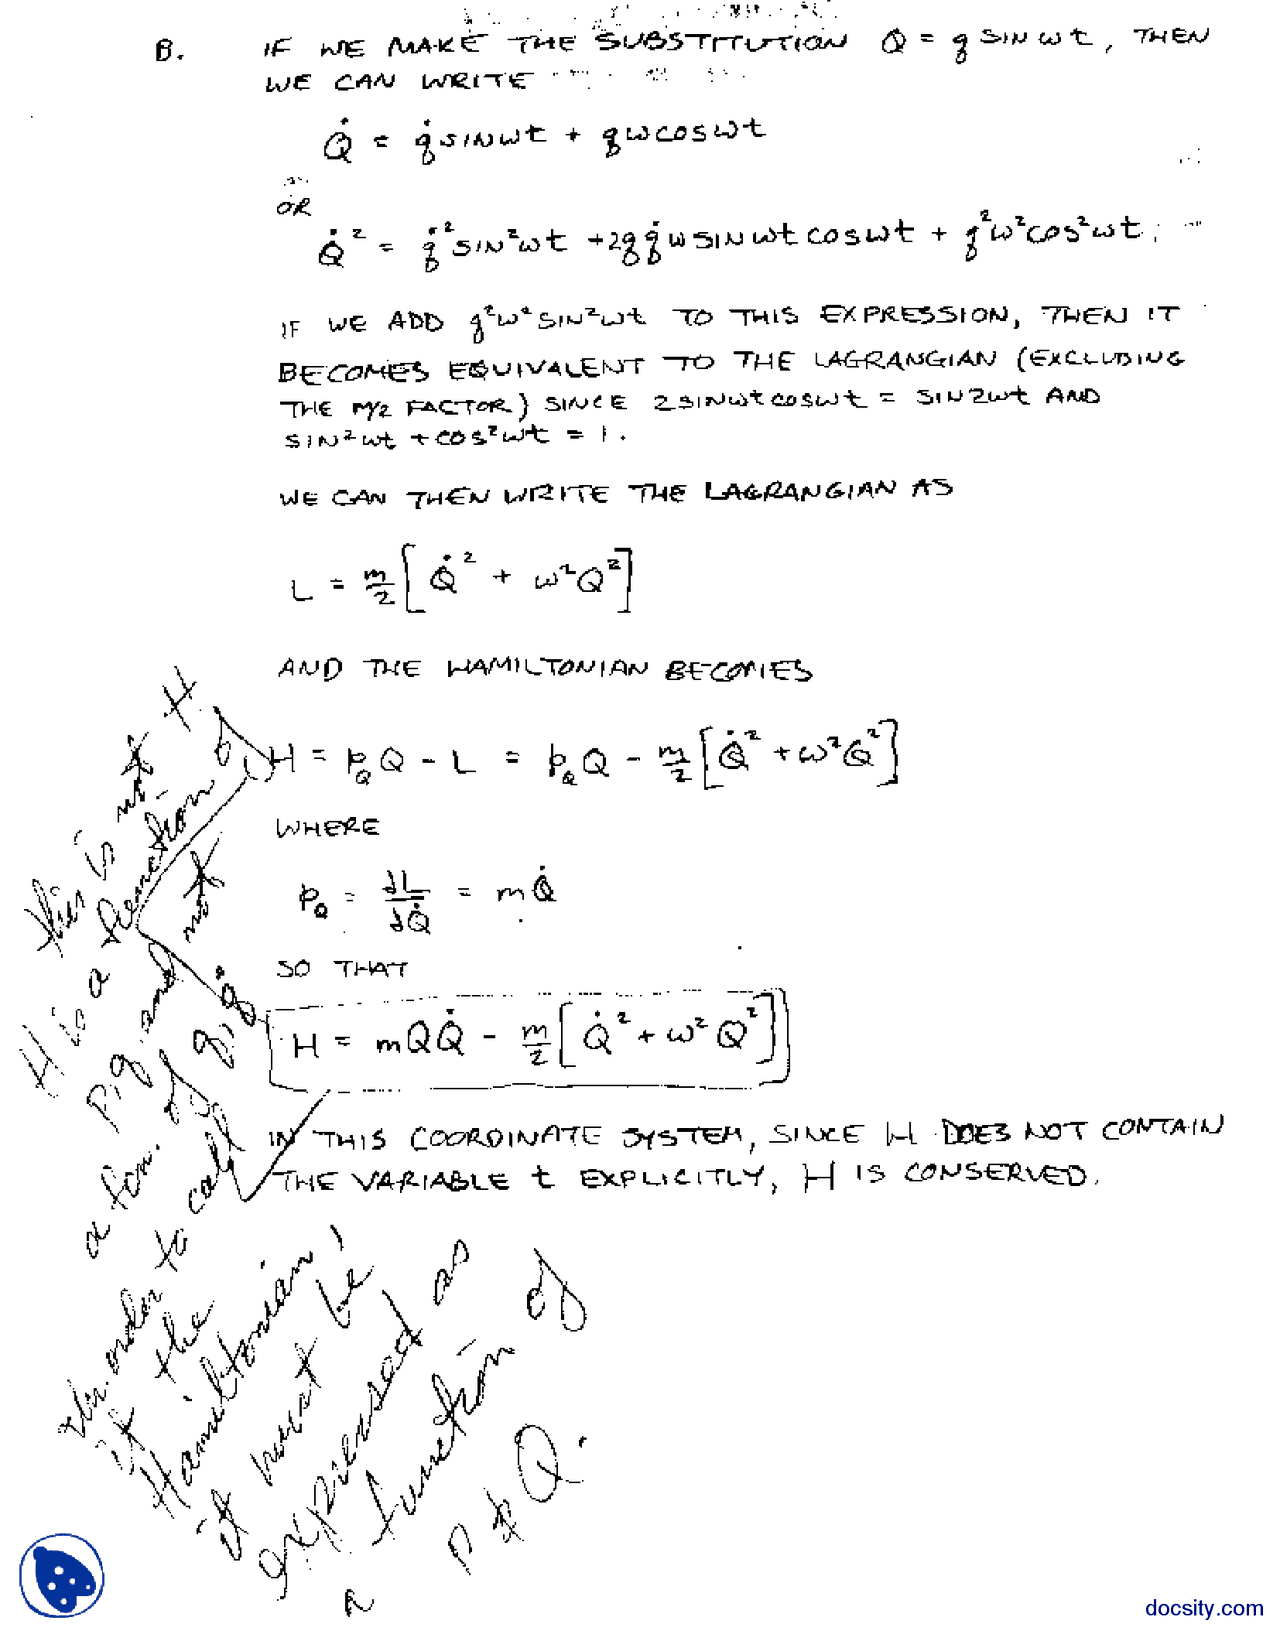 B. IF WE MAKE THE SUBSTITUTION Q = q SIN ωt, THEN
WE CAN WRITE
Q̇ = q̇ SIN ωt + qω COS ωt
OR
Q̇² = q̇² SIN² ωt + 2qq̇ω SIN ωt COS ωt + q²ω² COS² ωt;
IF WE ADD q²ω² SIN² ωt TO THIS EXPRESSION, THEN IT
BECOMES EQUIVALENT TO THE LAGRANGIAN (EXCLUDING
THE M/2 FACTOR) SINCE 2 SIN ωt COS ωt = SIN 2ωt AND
SIN² ωt + COS² ωt = 1.
WE CAN THEN WRITE THE LAGRANGIAN AS
L = m/2 [Q̇² + ω²Q²]
AND THE HAMILTONIAN BECOMES
H = p_Q Q - L = p_Q Q - m/2 [Q̇² + ω²Q²]
WHERE
p_Q = dL/dQ̇ = mQ̇
SO THAT
H = mQQ̇ - m/2 [Q̇² + ω²Q²]
IN THIS COORDINATE SYSTEM, SINCE H DOES NOT CONTAIN
THE VARIABLE t EXPLICITLY, H IS CONSERVED.
this is not H
H is a function of
p, q and not
a fcn. of q, q̇
in order to call
it the
Hamiltonian,
it must be
expressed as
a function of
P & Q.
docsity.com